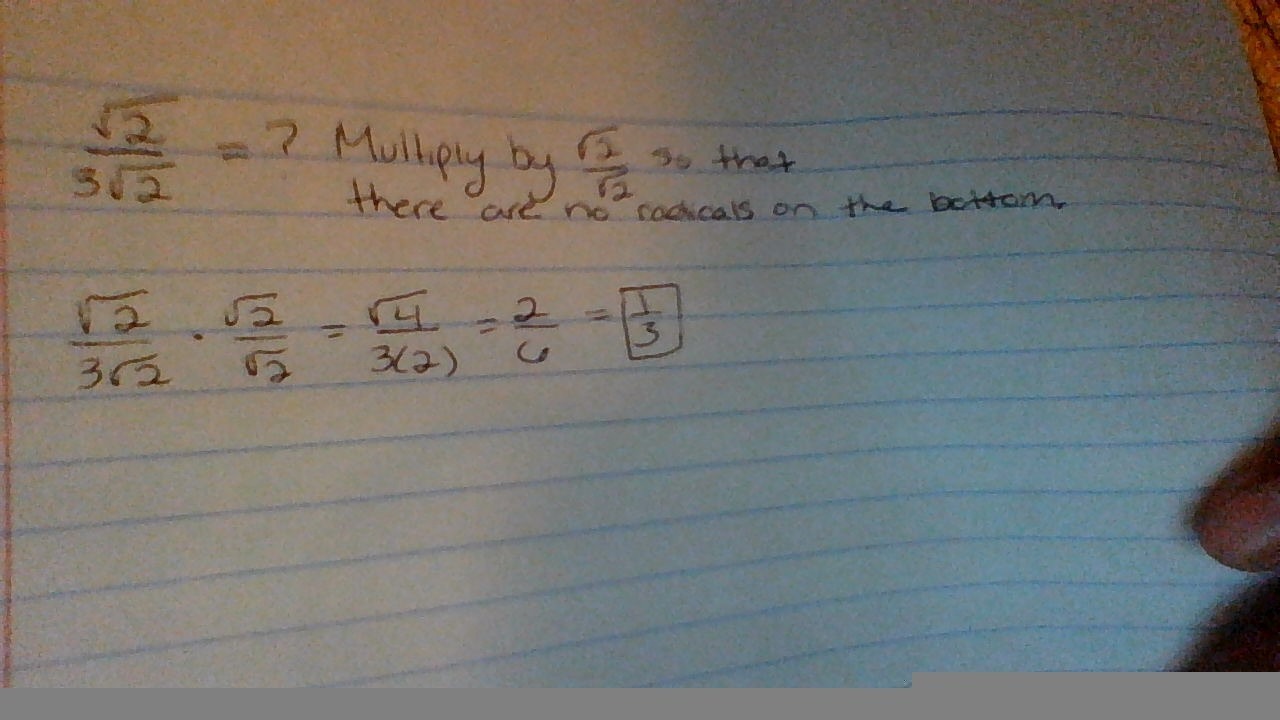 √2/3√2 = ? Multiply by √2/√2 so that
there are no radicals on the bottom.
√2/3√2 · √2/√2 = √4/3(2) = 2/6 = 1/3